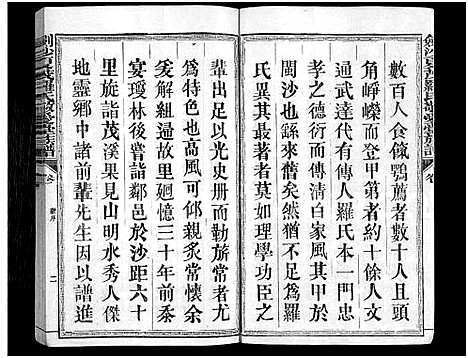 數百人食餼鶚薦者數十人且頭
角崢嶸而登甲第者約十餘人文
通武達代有傳人羅氏本一經傳
孝之德衍而傳清白家風其甲於
閩沙也繇來舊矣然猶不足為羅
氏異也其著者莫如理學功臣之
輩出足以光史册而勒旂常者尤
其特色也高風可仰親炙常懷余
爰解組逼故里廻憶三十年前買
遊璦林後皆鄰邑於沙距六十
里旋詣茂溪果見山明水秀人傑
地靈鄉中諸前輩先生因以譜進